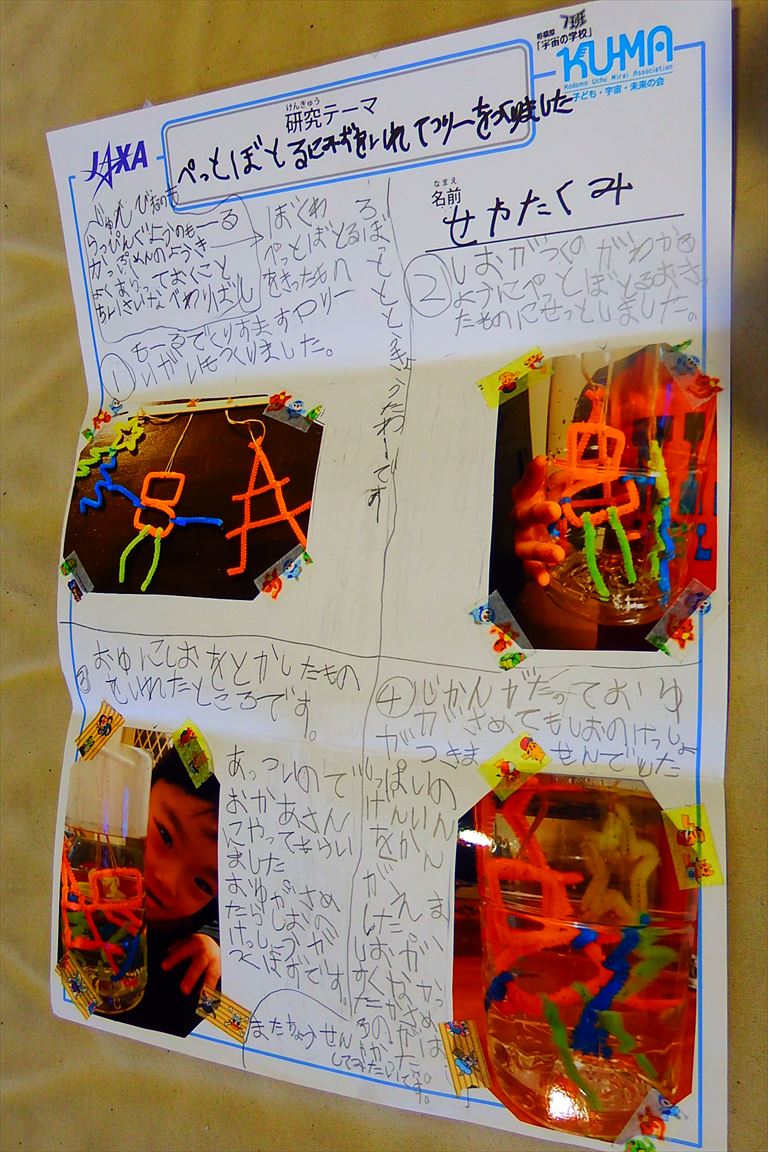 相模原 7班
「宇宙の学校」
KU-MA
Kodomo Uchu Mirai Association
子ども・宇宙・未来の会
JAXA
けんきゅう
研究テーマ
ぺっとぼとるにみずをいれてつりーをつくりました
なまえ
名前
せやたくみ
じゅんびするもの
らっぴんぐようのもーる
かっぷめんのようき
よくあらっておくこと
ぼくわ
ぺっとぼとる
をきったもの
① もーるでくりすますつりー
いがいもつくりました。
ろぼととときょうたわーです
② しおがつくのがわかる
ようにぺとぼとるおき
たものにせっとしました。
③ おゆにしおをとかしたもの
をいれたところです。
あっついので
おかあさん
にやってもらい
ました
おゆがさめ
たらしおの
けっしょうが
つくはずです。
④ じかんがたっておゆ
がさめてもしおのけっしょ
がつきませんでした
しっぱいの
げんいん
をかん
がえま
した。
またちょうせん
してみたいです。